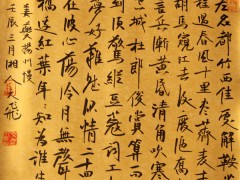 左名都竹西佳處解鞍少
過春風十里盡薺麥青
胡馬窺江去後廢池喬
言兵漸黃昏清角吹
空城杜郎俊賞算而
到須驚縱豆蔻詞工
夢好難賦深情二十四
在波心蕩冷月無聲
紅葉年知為誰生
姜夔揚州慢
壬辰三月湘人飛